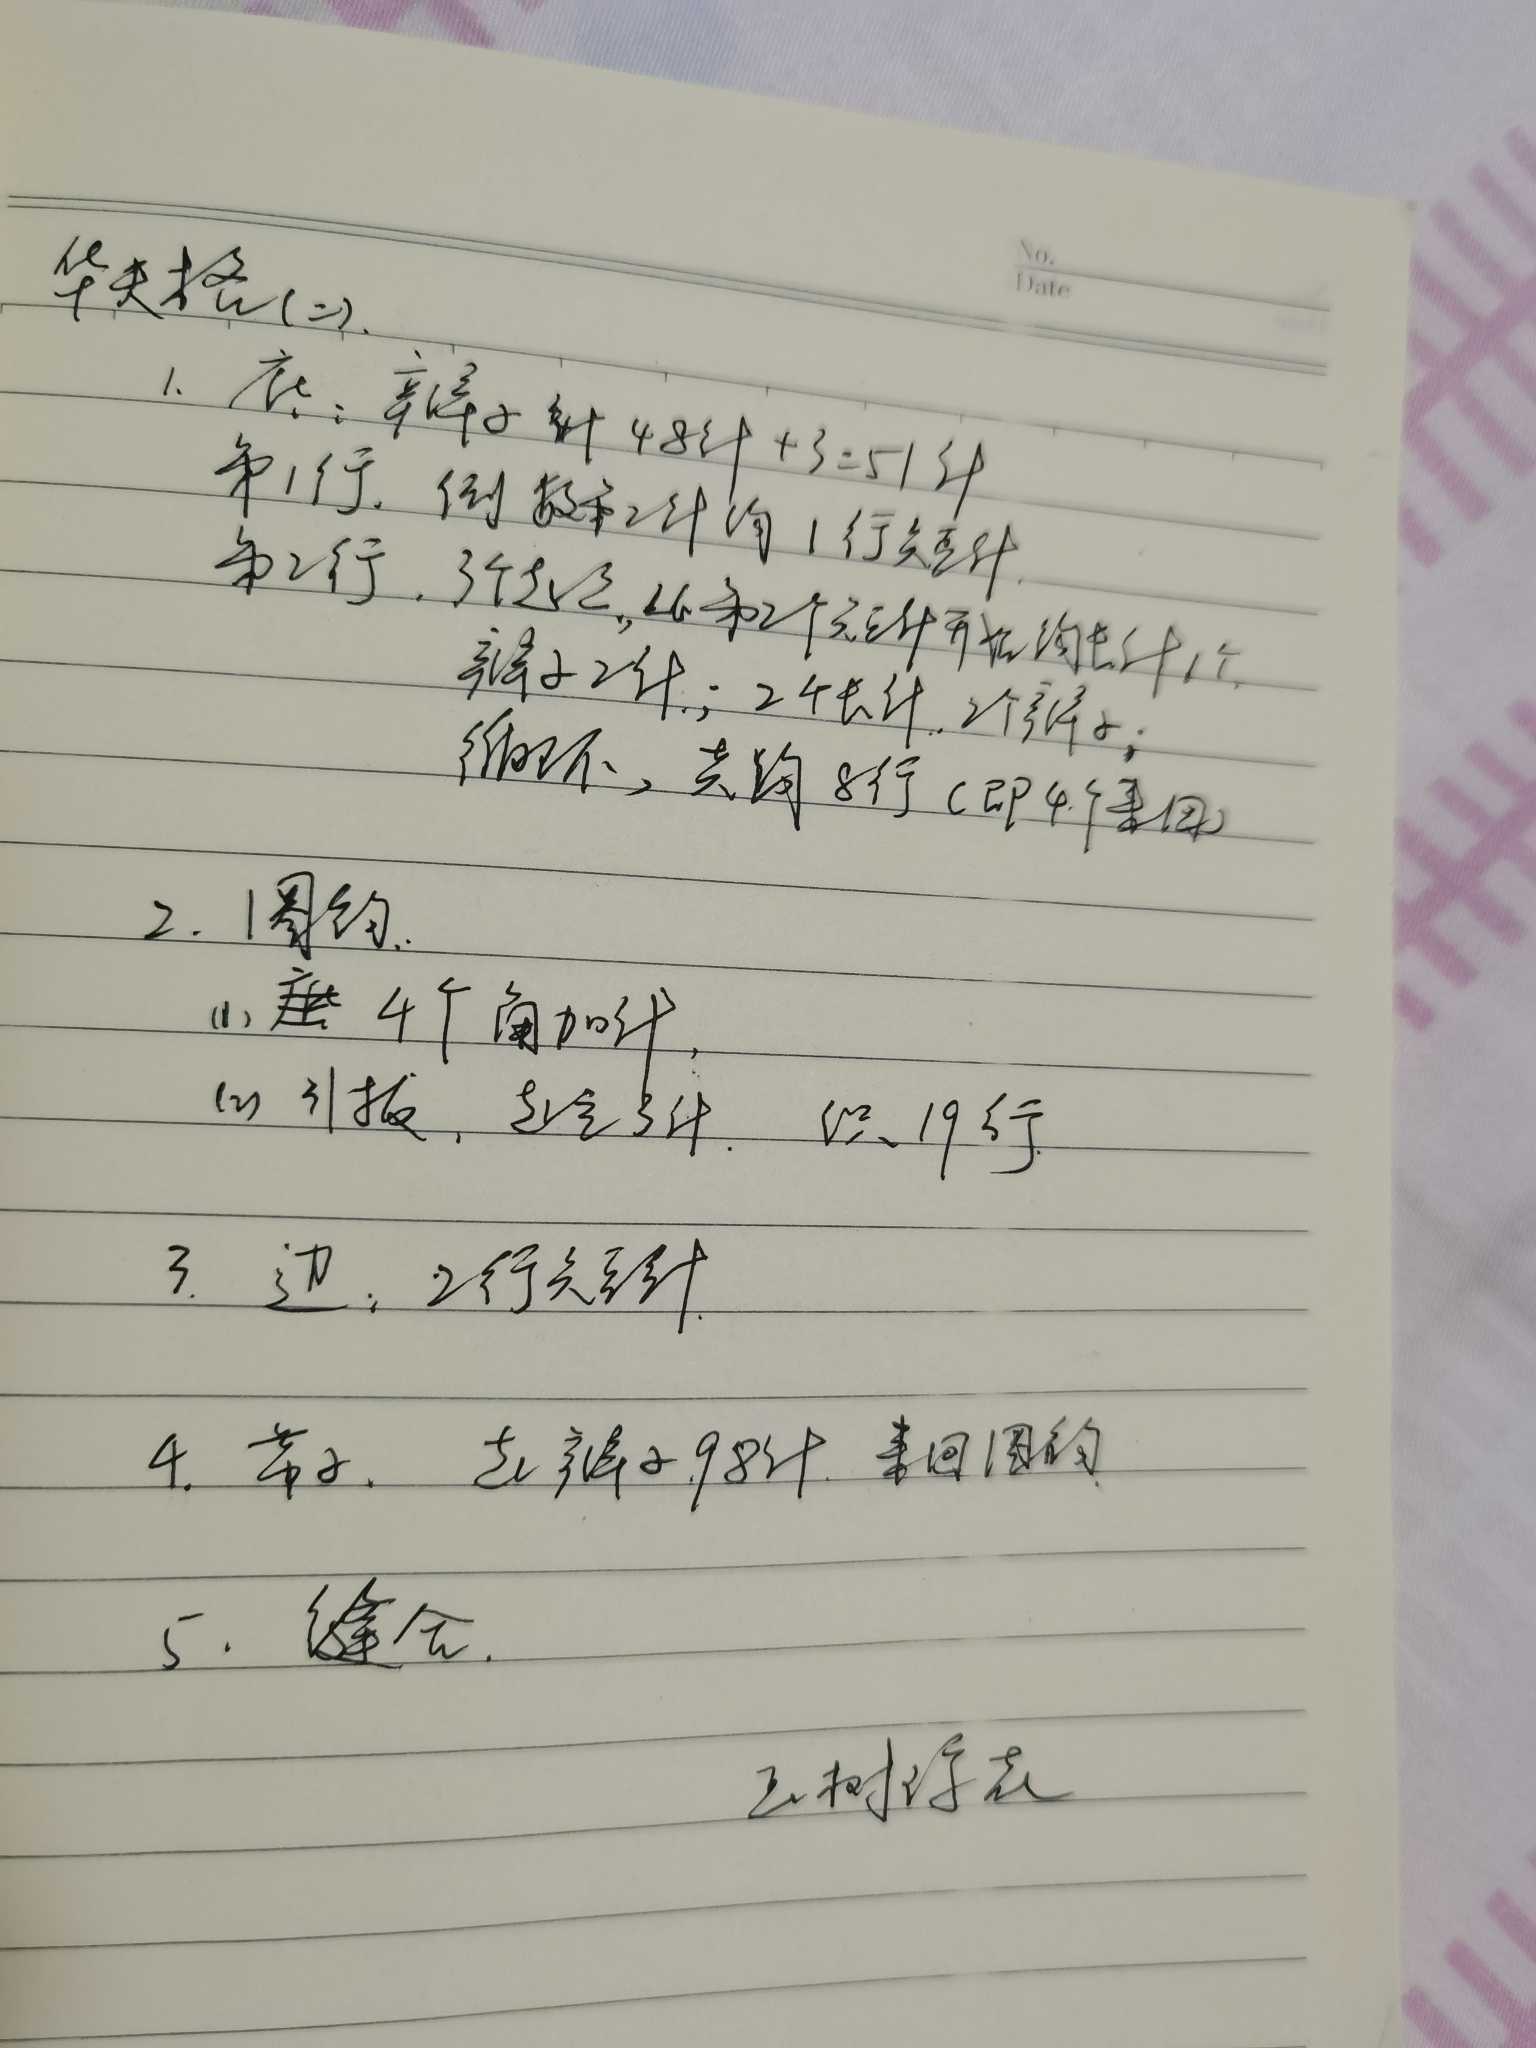 No.
Date
华夫格(二).
1. 底：辫子针 48针+3=51针
第1行. 倒数第2针钩1行短针.
第2行. 3个起立，从第2个短针开始钩长针1个.
辫子2针；2个长针. 2个辫子；
循环，共钩8行(即4个来回)
2. 1圈钩.
(1) 4个角加针，
(2) 引拔，起立3针. 织19行.
3. 边：2行短针.
4. 带子. 起辫子98针. 来回圈钩.
5. 缝合.